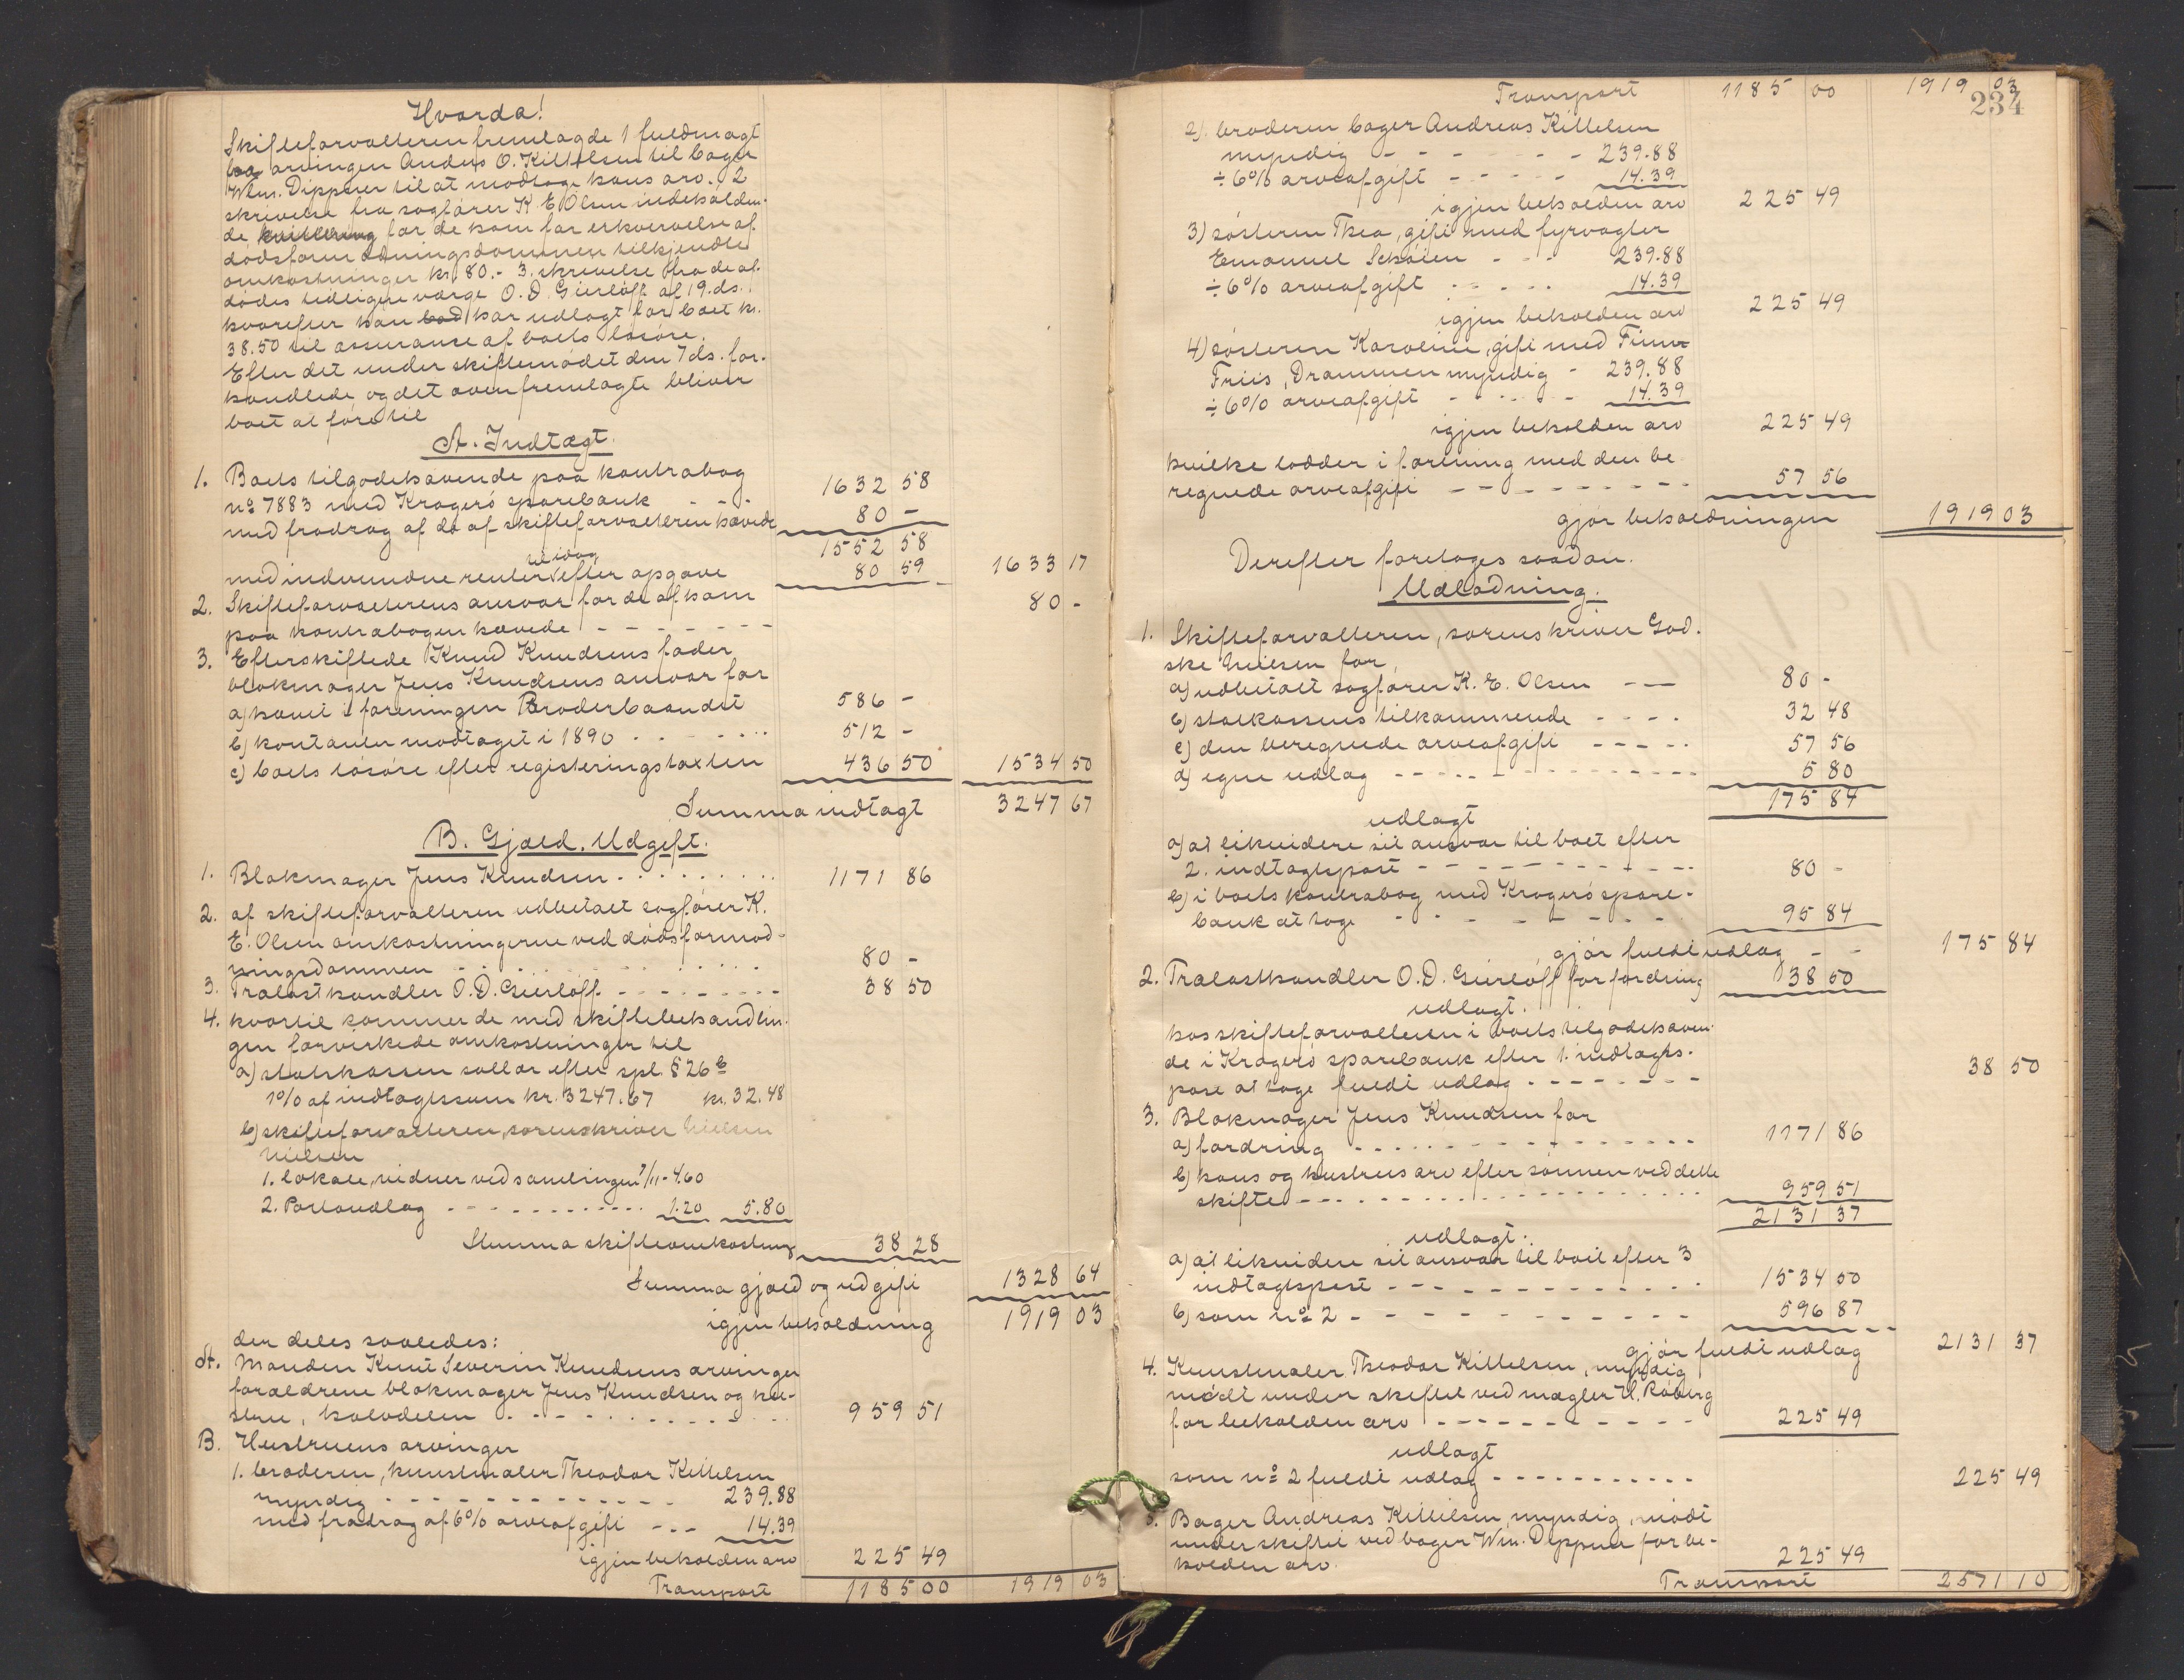 Hvorda!
Skifteforvalteren fremlagde 1 fuldmagt
fra arvingen Andras O. Kittelsen til bager
Wlm. Dippner til at modtage hans arv. 2
skrivelse fra sagfører K. E. Olsen indeholden-
de kvittering for de ham for erhvervelse af
dødsformodningsdommen tilkjendte
omkostninger kr. 80.- 3. skrivelse fra de af-
dødes tidligere værge O. D. Gierløff af 19. ds.
hvorefter han bad har udlagt for boet kr.
38.50 til assurance af boets løsøre.
Efter det under skiftemødet den 7 ds. for-
handlede og det ovenfremlagte bliver
boet at føre til
A. Indtægt.
1. Boets tilgodehavende paa kontrabog
no 7883 med Kragerø sparebank - - - 1632 58
med fradrag af de af skifteforvalteren hævede 80 -
1552 58
til idag
med indvundne renter efter opgave 80 59 1633 17
2. Skifteforvalterens ansvar for de af ham
paa kontrabogen hævede - - - - - - - 80 -
3. Efterskiftede Knud Knudsens fader
blokmager Jens Knudsens ansvar for
a) hævet i foreningen Broderbaandet 586 -
b) kontanter modtaget i 1890 - - - - - 512 -
c) boets løsøre efter registreringstaxten 436 50 1534 50
Summa indtægt 3247 67
B. Gjæld. Udgift.
1. Blokmager Jens Knudsen - - - - - - - - 1171 86
2. af skifteforvalteren udbetalt sagfører K.
E. Olsen omkostningerne ved dødsformod-
ningsdommen - - - - - - - - - - 80 -
3. Trælasthandler O. D. Gierløff - - - - - - - - 38 50
4. hvortil kommer de med skiftebehandlin-
gen forvirkede omkostninger til
a) statskassen sallær efter spl. § 26 b
1% af indtægtssum kr. 3247.67 kr. 32.48
b) skifteforvalteren, sorenskriver Nielsen
Nielsen
1. lokale, vidner ved samlingen 7/11 - 4.60
2. Portoudlæg - - - - - - - - - - - 1.20 5.80
Summa skifteomkostning 38 28
Summa gjæld og udgift 1328 64
igjen beholdning 1919 03
der deles saaledes:
A. Manden Knut Severin Knudsens arvinger
forældrene blokmager Jens Knudsen og hu-
stru, halvdelen - - - - - - - - - - 959 51
B. Hustruens arvinger
1. broderen, kunstmaler Theodor Kittelsen
myndig - - - - - - - - - - - - 239.88
med fradrag af 6% arveafgift - - - 14.39
igjen beholden arv 225 49
Transport 1185 00 1919 03
234
Transport 1185 00 1919 03
2) broderen bager Andreas Kittelsen
myndig - - - - - - - 239.88
÷ 6% arveafgift - - - - - 14.39
igjen beholden arv 225 49
3) søsteren Thea, gift med fyrvogter
Emanuel Schøien - - - 239.88
÷ 6% arveafgift - - - - - 14.39
igjen beholden arv 225 49
4) søsteren Karoline, gift med Finn
Friis, Drammen myndig - 239.88
÷ 6% arveafgift - - - - - - 14.39
igjen beholden arv 225 49
hvilke lodder i forening med den be-
regnede arveafgift - - - - - - - - - 57 56
gjør beholdningen 1919 03
Derefter foretoges saadan.
Udlodning.
1. Skifteforvalteren, sorenskriver God-
ske Nielsen for
a) udbetalt sagfører K. E. Olsen - - 80 -
b) statkassens tilkommende - - - - 32 48
c) den beregnede arveafgift - - - - - 57 56
d) egne udlæg - - - - - - - - - - - - - - 5 80
175 84
udlagt
a) at likvidere sit ansvar til boet efter
2. indtægtspost - - - - - - - - - - - - 80 -
b) i boets kontrabog med Kragerø spare-
bank at tage - - - - - - - - - 95 84
gjør fuldt udlæg - - 175 84
2. Trælasthandler O. D. Gierløff for fordring 38 50
udlagt.
hos skifteforvalteren i boets tilgodehaven-
de i Kragerø sparebank efter 1. indtægts-
post at tage fuldt udlæg - - - - - - - 38 50
3. Blokmager Jens Knudsen for
a) fordring - - - - - - - - - - - - - - 1171 86
b) hans og hustrus arv efter sønnen ved dette
skifte - - - - - - - - - - - - - - - - - - 959 51
2131 37
udlagt.
a) at likvidere sit ansvar til boet efter 3
indtægtspost - - - - - - - - - - - - 1534 50
b) som no 2 - - - - - - - - - - - - 596 87
gjør fuldt udlæg 2131 37
4. Kunstmaler Theodor Kittelsen, myndig
mødt under skiftet ved mægler H. Råberg
for beholden arv - - - - - - - - - - 225 49
udlagt
som no 2 fuldt udlæg - - - - - - - - - - - 225 49
5. Bager Andreas Kittelsen, myndig, mødt
under skiftet ved bager Wm. Dippner for be-
holden arv. 225 49
Transport 2571 10